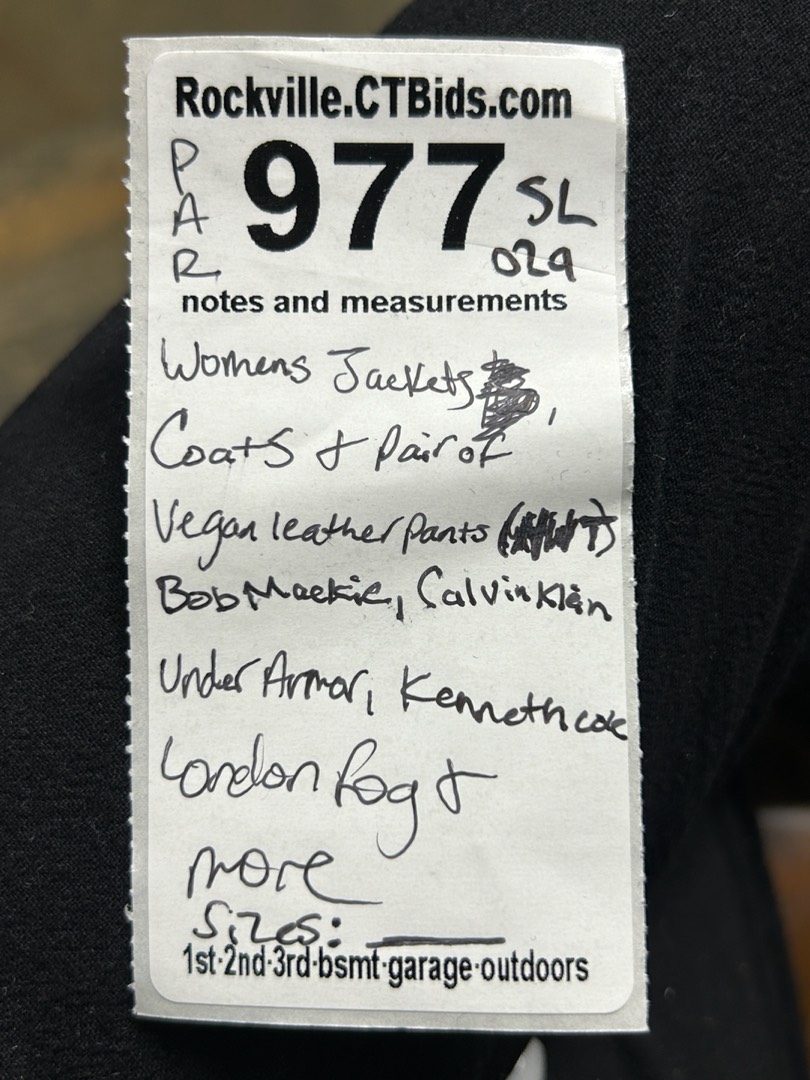 Rockville.CTBids.com
P
A
R
977
SL
029
notes and measurements
Womens Jackets,
Coats & Pair of
Vegan leather pants
Bob Mackie, Calvin Klein
Under Armor, Kenneth cole
London Fog &
more
Sizes:
1st·2nd·3rd·bsmt·garage·outdoors